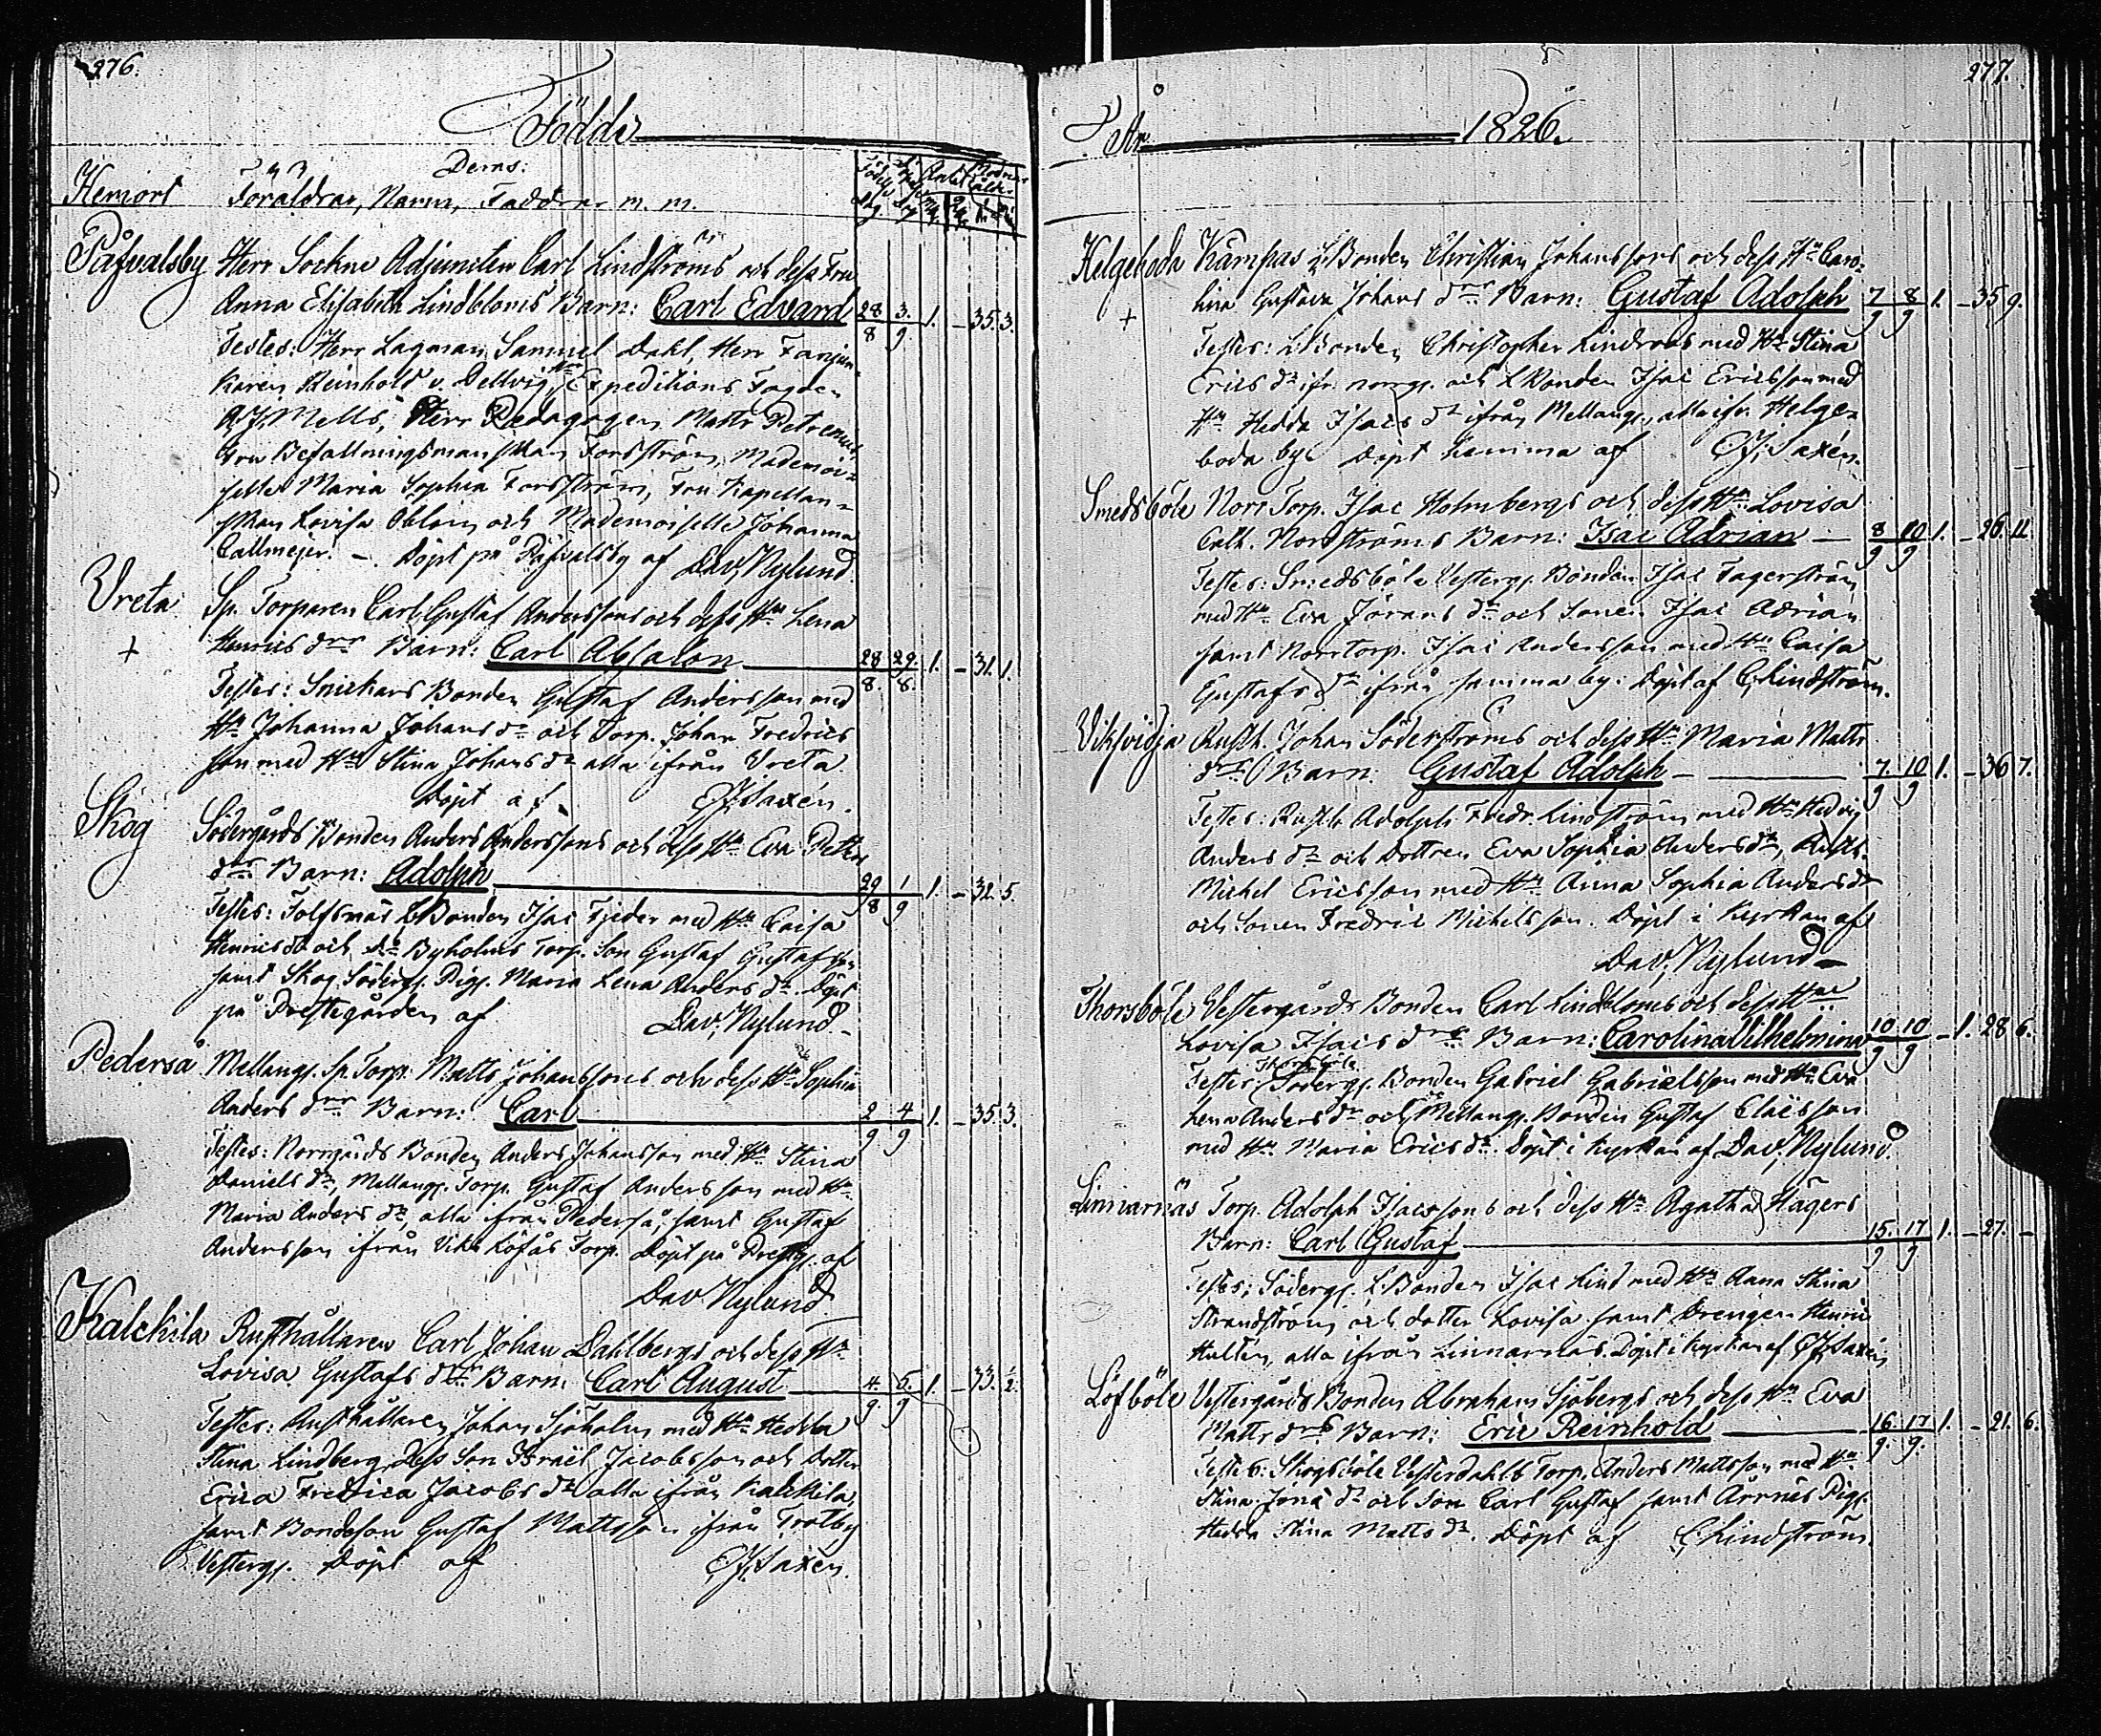 276.
Födde
Hemort
Föräldrar, Deras: Namn, Faddrar m. m.
Påfvalsby Herr Sockne Adjuncten Carl Lindströms och dess Fru
Anna Elisabeth Lindbloms Barn: Carl Edvard 28/8 3/9 1. – 35. 3.
Testes: Herr Lagman Samuel Dahl, Herr Fanjun-
karen Reinhold v. Dellvig, Expeditions Fogden
A. J. Mells, Herr Pædagogen Matts Petrenius
Fru Befallningsmanskan Forsström, Mademoi-
selle Maria Sophia Forsström, Fru Kapellan-
skan Lovisa Oblom och Mademoiselle Johanna
Callmejer. – Döpt på Påfvalsby af Dav. Nylund
Vreta Sp. Torparen Carl Gustaf Anderssons och dess Hu Lena
+ Henrics drs Barn: Carl Absalon 28/8. 29./8. 1. – 31. 1.
Testes: Snickars Bonden Gustaf Andersson med
Hu Johanna Johans dr och Torp. Johan Fredrics
son med Hu Stina Johans dr alla ifrån Vreta
Döpt af CJSaxén.
Skog Södergårds Bonden Anders Anderssons och dess Hu Eva Petters
drs Barn: Adolph 29/8 1/9 1. – 32. 5.
Testes: Tolfsnäs LBonden Isac Fjeder med Hu Caisa
Henrics dr och Do Byholms Torp. Son Gustaf Gustafsson
samt Skog Söderg. Pig. Maria Lena Anders dr. Döpt
på Prestegården af Dav. Nylund
Pederså Mellang. Sp. Torp. Matts Johanssons och dess Hu Sophia
Anders drs Barn: Carl 2/9 4/9 1. – 35. 3.
Testes: Norrgårds Bonden Anders Johansson med Hu Stina
Daniels dr, Mellang. Torp. Gustaf Andersson med Hu
Maria Anders dr, alla ifrån Pederså, samt Gustaf
Andersson ifrån Viks Löfås Torp. Döpt på Prestg. af
Dav. Nylund
Kalckila Rusthållaren Carl Johan Dahlbergs och dess Hu
Lovisa Gustafs drs Barn: Carl August 4./9 5./9 1. – 33. 2.
Testes: Rusthållaren Johan Sjöholm med Hu Hedda
Stina Lindberg, dess Son Israël Jacobsson och Dotter
Erica Fredrica Jacobs dr alla ifrån Kalckila,
samt Bondeson Gustaf Mattsson ifrån Trotby
Vesterg. Döpt af CJSaxén.
277.
År 1826.
Helgeboda Kämpas LBonden Christian Johanssons och dess Hu Caro-
+ lina Gustava Johans drs Barn: Gustaf Adolph 7/9 8/9 1. – 35 9.
Testes: LBonden Christopher Lindroos med Hu Stina
Erics dr ifr. norrg. och LBonden Isac Ericsson med
Hu Hedda Isacs dr ifrån Mellang., alla ifr. Helge-
boda by. Döpt hemma af CJ. Saxén.
Smedsböle Norr Torp. Isac Holmbergs och dess Hu Lovisa
Cath. Nordströms Barn: Isac Adrian 8/9 10/9 1. – 26. 11.
Testes: Smedsböle Vesterg. Bonden Isac Fagerström
med Hu Eva Jörans dr och Sonen Isac Adrian
samt Norrtorp. Isac Andersson med Hu Caisa
Gustafs dr ifrån samma by. Döpt af CLindström.
Viksvidja Rusth. Johan Söderströms och dess Hu Maria Matts
drs Barn: Gustaf Adolph 7./9 10/9 1. – 36 7.
Testes: Rusth. Adolph Fredr. Lindström med Hu Hedvig
Anders dr och Dottren Eva Sophia Anders dr, Rusth.
Michel Ericsson med Hu Anna Sophia Anders dr
och Sonen Fredric Michelsson. Döpt i Kyrkan af
Dav. Nylund
Thorsböle Vestergårds Bonden Carl Lindbloms och dess Hu
Lovisa Isacs drs Barn: Carolina Vilhelmina 10/9 10/9 – 1. 28 6.
Testes: Thorsböle Söderg. Bonden Gabriel Gabrielsson med Hu Eva
Lena Anders dr och Mellang. Bonden Gustaf Claësson
med Hu Maria Erics dr. Döpt i Kyrkan af Dav. Nylund.
Linnarnäs Torp. Adolph Isacssons och dess Hu Agatha Hägers
Barn: Carl Gustaf 15./9 17/9 1. – 27. –
Testes: Söderg. LBonden Isac Lind med Hu Anna Stina
Strandström och dotter Lovisa samt Drengen Henric
Hultén, alla ifrån Linnarnäs. Döpt i kyrkan af CJSaxén
Löfböle Vestergårds Bonden Abraham Sjöbergs och dess Hu Eva
Matts drs Barn: Eric Reinhold 16./9. 17/9. 1. – 21. 6.
Testes: Skogsböle Vesterdahls Torp. Anders Mattsson med Hu
Stina Jona dr och Son Carl Gustaf samt Arrnäs Pig.
Hedda Stina Matts dr. Döpt af CLindström.